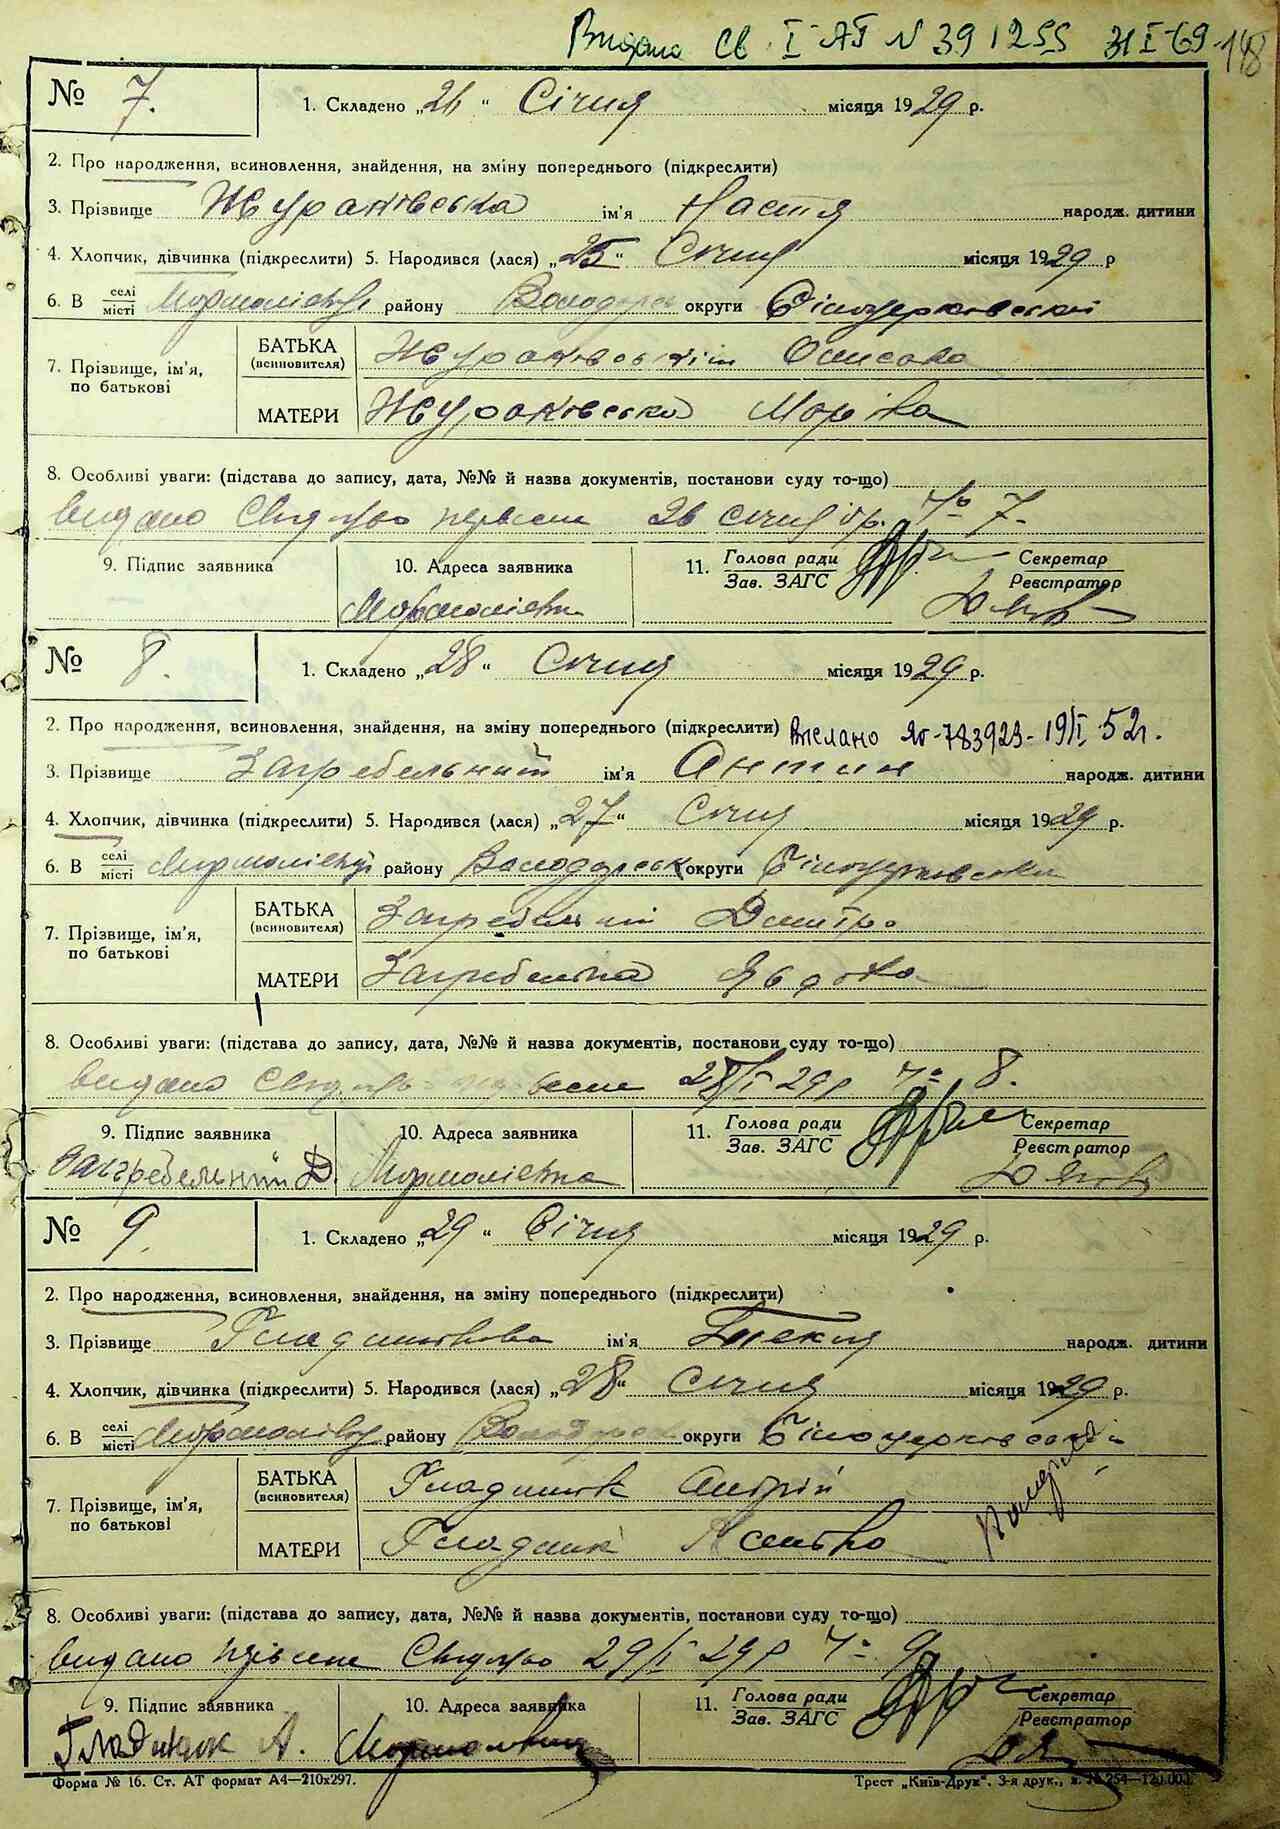 Видано св. I-АТ N 391255 31 I-69
148
№ 7. 1. Складено „26“ Січня місяця 1929 р.
2. Про народження, всиновлення, знайдення, на зміну попереднього (підкреслити)
3. Прізвище Жураківська ім'я Настя народж. дитини
4. Хлопчик, дівчинка (підкреслити) 5. Народився (лася) „25“ Січня місяця 1929 р
6. В селі місті Мормоліївці району Володарськ округи Білоцерковської
7. Прізвище, ім'я, по батькові
БАТЬКА (всиновителя) Жураковський
МАТЕРИ Жураковська Марія
8. Особливі уваги: (підстава до запису, дата, №№ й назва документів, постанови суду то-що)
видано Свідоцтво первісне 26 січня ц/р. № 7.
9. Підпис заявника 10. Адреса заявника 11. Голова ради Зав. ЗАГС Секретар Реєстратор
Мормоліївка
№ 8. 1. Складено „28“ Січня місяця 1929 р.
2. Про народження, всиновлення, знайдення, на зміну попереднього (підкреслити) Выслано 783923 - 19/I 52г.
3. Прізвище Загребельний ім'я Антин народж. дитини
4. Хлопчик, дівчинка (підкреслити) 5. Народився (лася) „27“ Січня місяця 1929 р.
6. В селі місті Мормоліївці району Володарськ округи Білоцерковської
7. Прізвище, ім'я, по батькові
БАТЬКА (всиновителя) Загребельний Дмитро
МАТЕРИ Загребельна Явдоха
8. Особливі уваги: (підстава до запису, дата, №№ й назва документів, постанови суду то-що)
видано Свідоцтво первісне 28/I 29р № 8.
9. Підпис заявника 10. Адреса заявника 11. Голова ради Зав. ЗАГС Секретар Реєстратор
Загребельний Д. Мормоліївка
№ 9. 1. Складено „29“ Січня місяця 1929 р.
2. Про народження, всиновлення, знайдення, на зміну попереднього (підкреслити)
3. Прізвище ім'я Текля народж. дитини
4. Хлопчик, дівчинка (підкреслити) 5. Народився (лася) „28“ Січня місяця 1929 р.
6. В селі місті Мормоліївці району Володарськ округи Білоцерковської
7. Прізвище, ім'я, по батькові
БАТЬКА (всиновителя) Гладишок Андрій
МАТЕРИ
8. Особливі уваги: (підстава до запису, дата, №№ й назва документів, постанови суду то-що)
видано первісне Свідоцтво 29/I 29р № 9
9. Підпис заявника 10. Адреса заявника 11. Голова ради Зав. ЗАГС Секретар Реєстратор
А. Мормоліївка
Форма № 16. Ст. АТ формат А4—210x297. Трест „Київ-Друк“. 3-я друк., з. № 254—120.000.